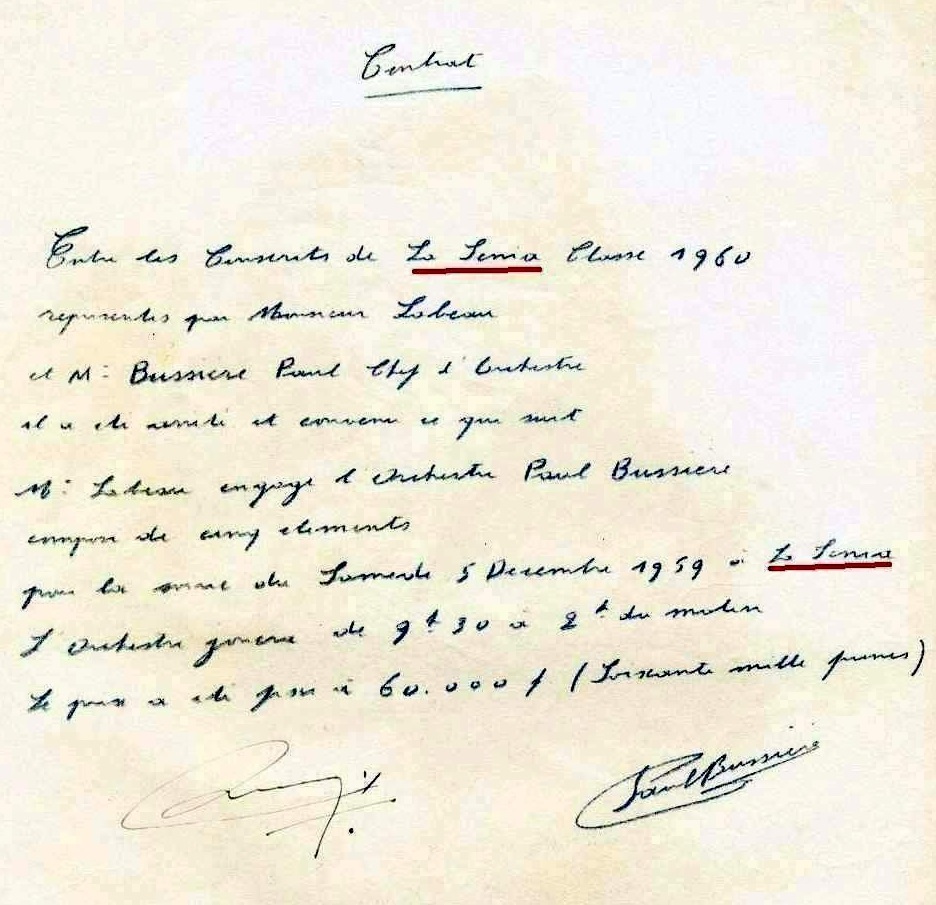 Contrat
Entre les Conscrits de La Senia Classe 1960
représentés par Monsieur Labeau
et Mr Bussiere Paul Chef d'Orchestre
il a été arrêté et convenu ce que suit
Mr Labeau engage l'Orchestre Paul Bussiere
composé de cinq éléments
pour la soirée du Samedi 5 Decembre 1959 à La Senia
L'Orchestre jouera de 9h 30 à 2h du matin
Le prix a été fixé à 60.000 f (Soixante mille francs)
Paul Bussiere